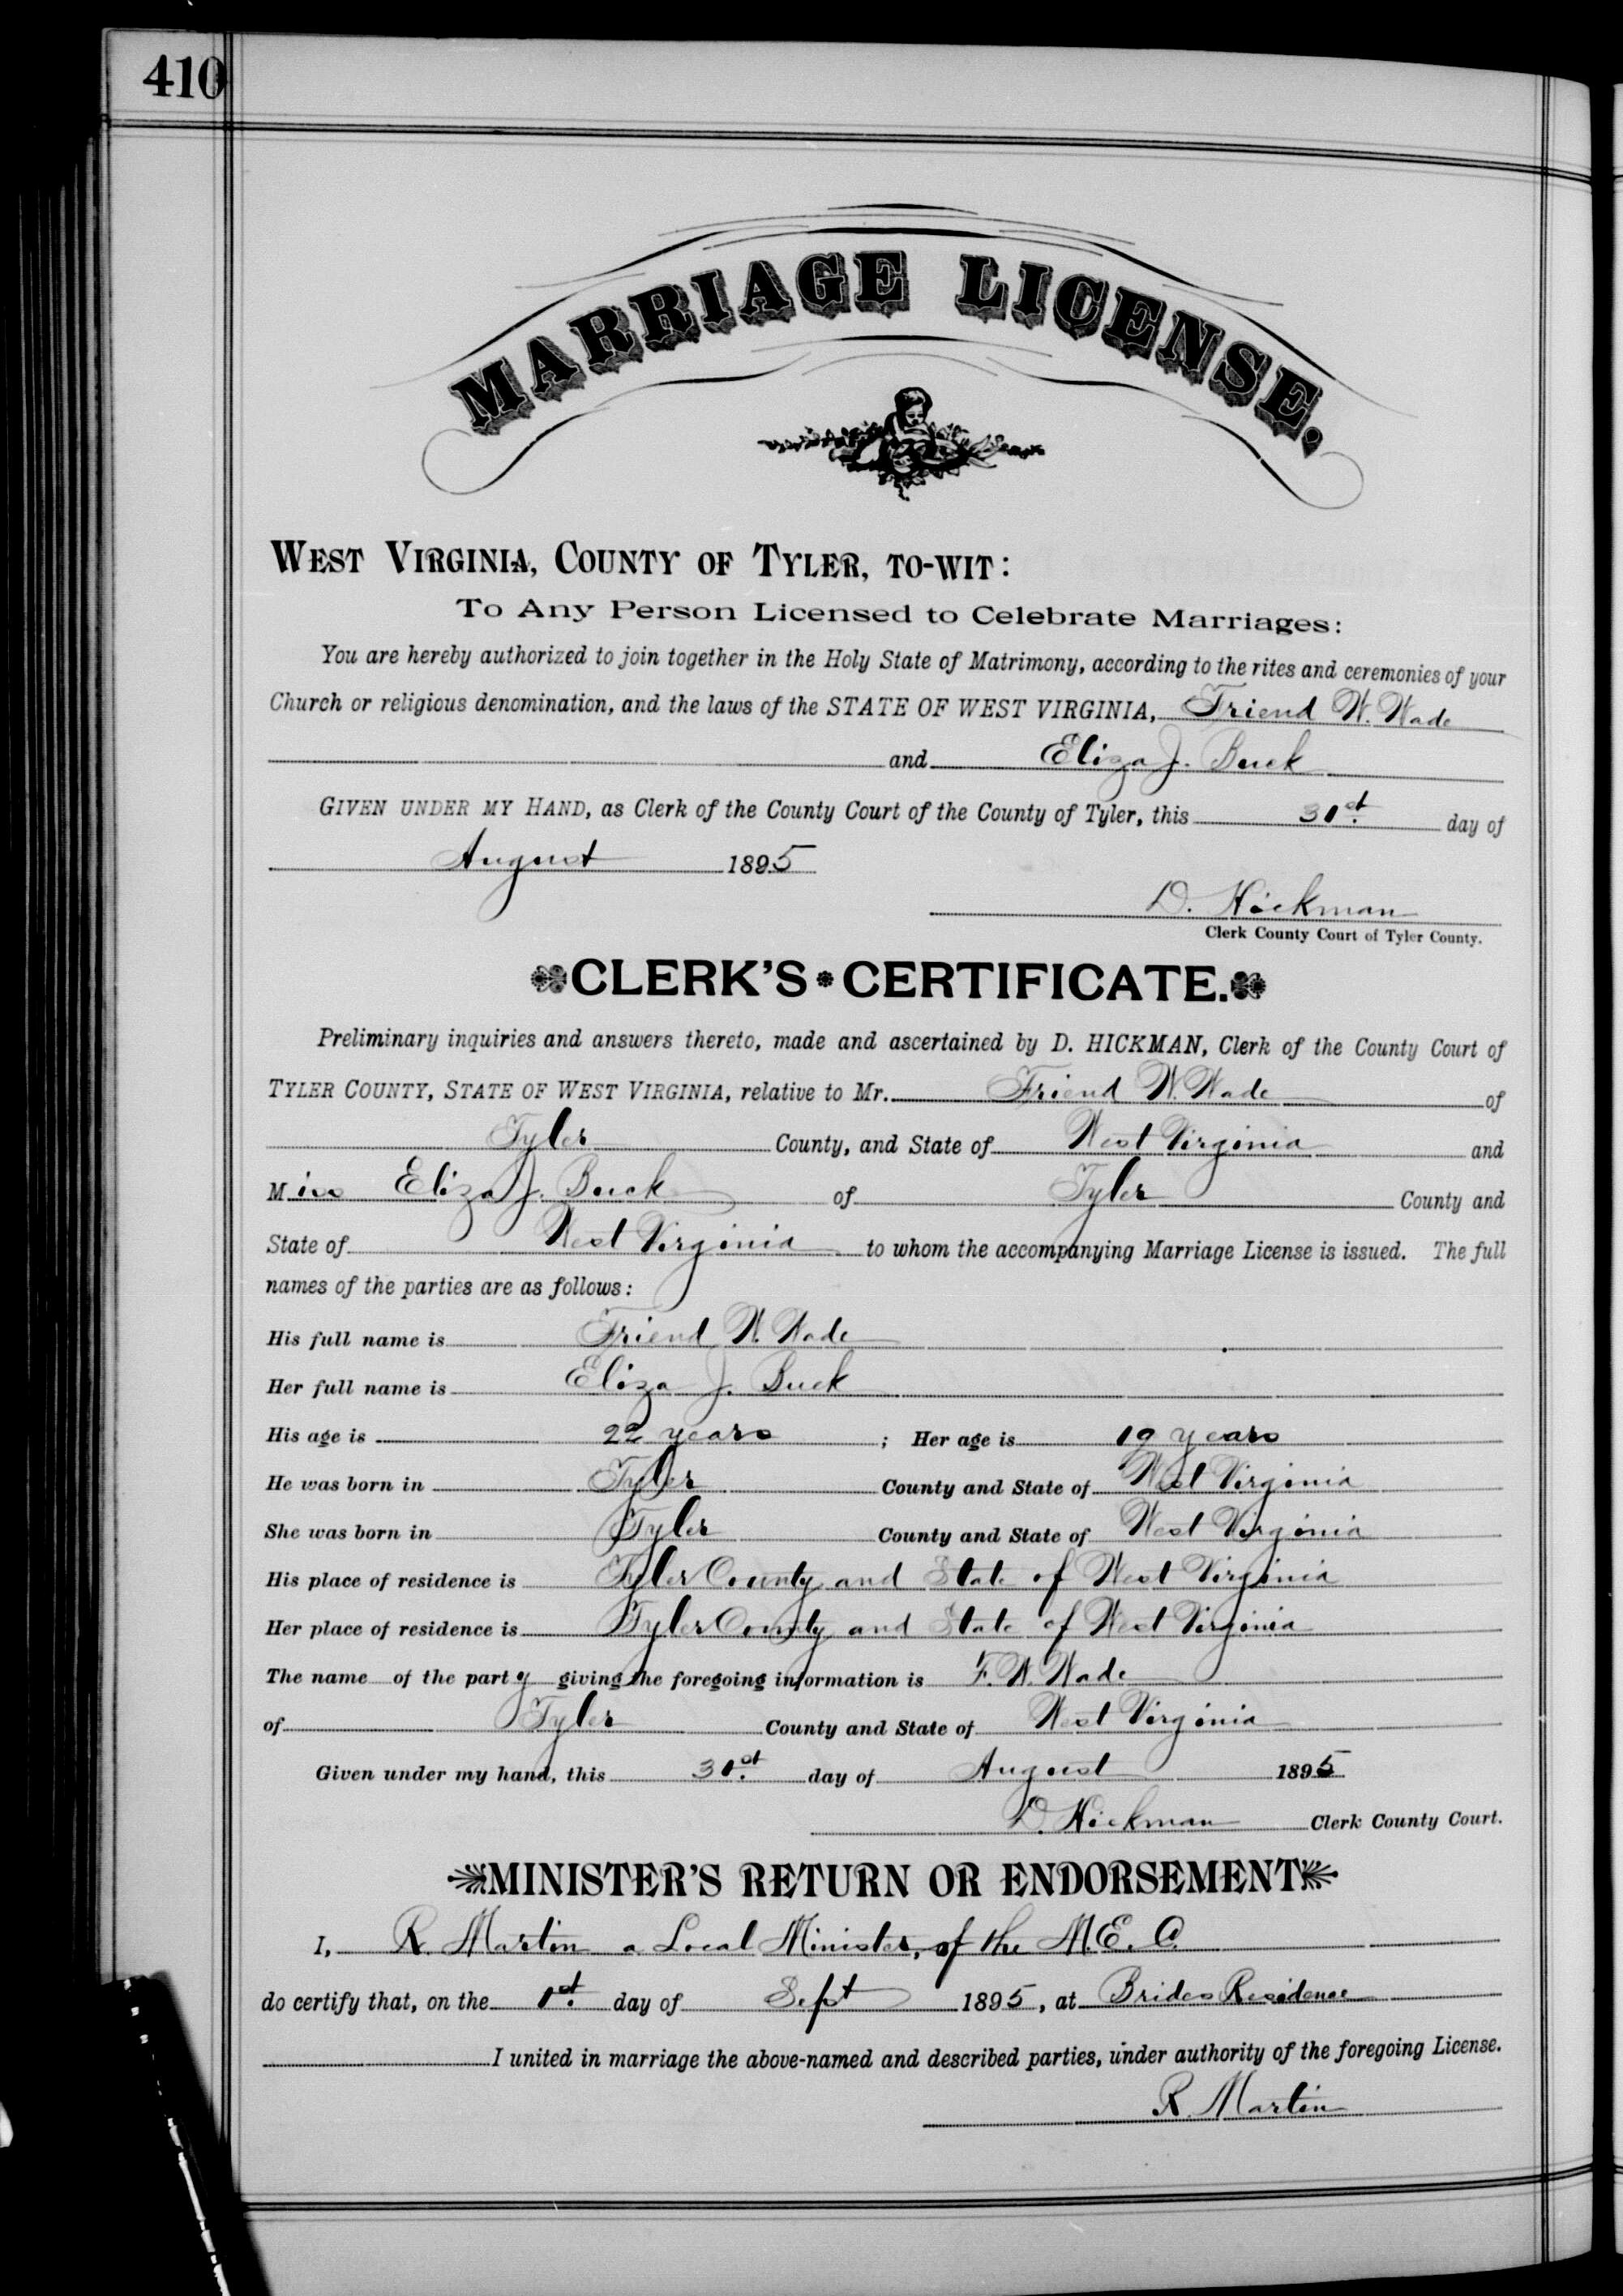 410
MARRIAGE LICENSE.
WEST VIRGINIA, COUNTY OF TYLER, TO-WIT:
To Any Person Licensed to Celebrate Marriages:
You are hereby authorized to join together in the Holy State of Matrimony, according to the rites and ceremonies of your
Church or religious denomination, and the laws of the STATE OF WEST VIRGINIA, Friend W. Wade
and Eliza J. Buck
GIVEN UNDER MY HAND, as Clerk of the County Court of the County of Tyler, this 31st day of
August 1895
D. Hickman
Clerk County Court of Tyler County.
CLERK'S CERTIFICATE.
Preliminary inquiries and answers thereto, made and ascertained by D. HICKMAN, Clerk of the County Court of
TYLER COUNTY, STATE OF WEST VIRGINIA, relative to Mr. Friend W. Wade of
Tyler County, and State of West Virginia and
Miss Eliza J. Buck of Tyler County and
State of West Virginia to whom the accompanying Marriage License is issued. The full
names of the parties are as follows:
His full name is Friend W. Wade
Her full name is Eliza J. Buck
His age is 22 years ; Her age is 19 years
He was born in Tyler County and State of West Virginia
She was born in Tyler County and State of West Virginia
His place of residence is Tyler County and State of West Virginia
Her place of residence is Tyler County and State of West Virginia
The name of the party giving the foregoing information is F. W. Wade
of Tyler County and State of West Virginia
Given under my hand, this 31st day of August 1895
D. Hickman Clerk County Court.
MINISTER'S RETURN OR ENDORSEMENT
I, R. Martin a Local Minister, of the M. E. C.
do certify that, on the 1st day of Sept 1895, at Brides Residence
I united in marriage the above-named and described parties, under authority of the foregoing License.
R. Martin